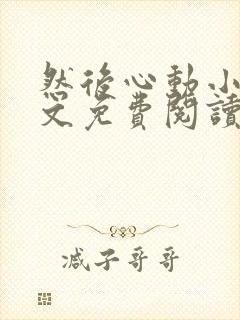 然后心動小
文免費閱讀
减子哥哥